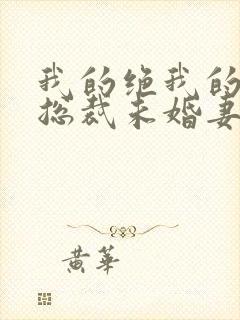 我的绝我的
总裁未婚妻
黄华